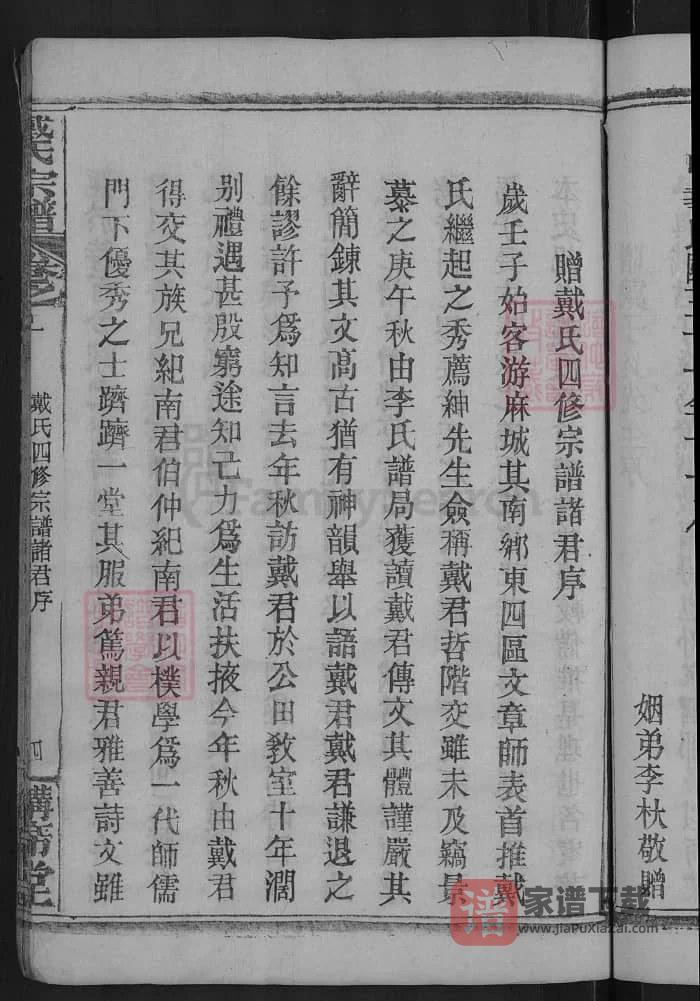 姻弟李杕敬贈
贈戴氏四修宗譜諸君序
歲壬子始客游麻城其南鄉東四區文章師表首推戴
氏繼起之秀薦紳先生僉稱戴君哲階交雖未及竊景
慕之庚午秋由李氏譜局獲讀戴君傳文其體謹嚴其
辭簡鍊其文高古猶有神韻舉以語戴君戴君謙退之
餘謬許予爲知言去年秋訪戴君於公田教室十年濶
别禮遇甚殷窮途知己力爲生活扶掖今年秋由戴君
得交其族兄紀南君伯仲紀南君以樸學爲一代師儒
門下優秀之士躋躋一堂其服弟篤親君雅善詩文雖
戴氏宗譜 卷之一 戴氏四修宗譜諸君序 四 講帝堂
家谱下载
www.jiaPuXiaZai.com